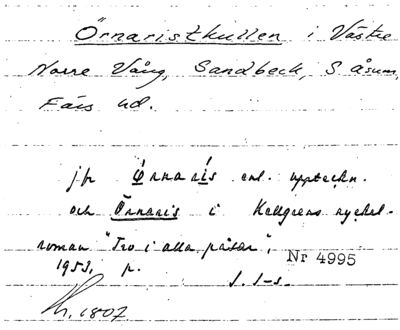 Örnaristkullen i Västre
Norre Vång, Sandbeck, S åsum,
Färs hd.
jfr Örnaris enl. uppteckn.
och Örnaris i Hellgrens nyckel-
roman "Tro i alla påsar",
1953, p.
Nr 4995
S. I-s.
1807